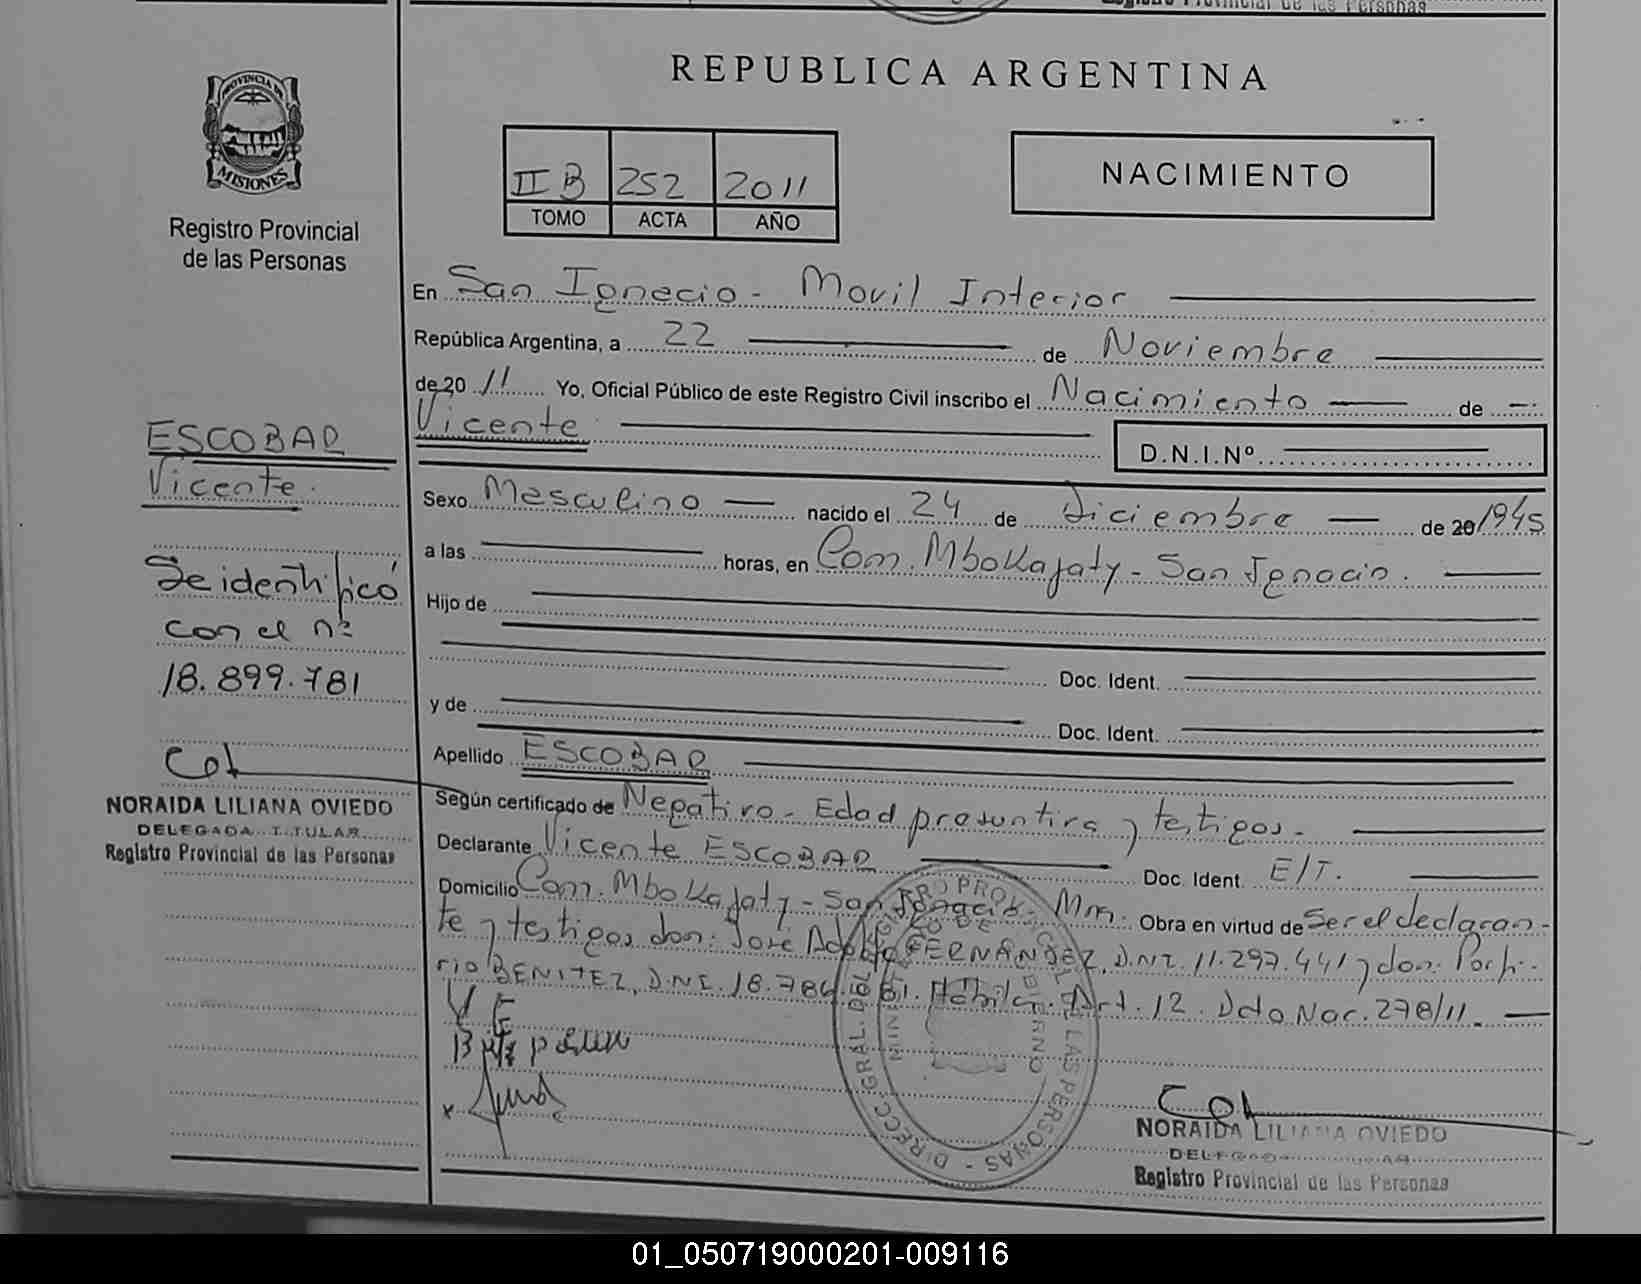 Registro Provincial de las Personas
REPUBLICA ARGENTINA
PROVINCIA DE
MISIONES
Registro Provincial
de las Personas
II B 252 2011
TOMO ACTA AÑO
NACIMIENTO
En San Ignacio - Movil Interior
República Argentina, a 22 de Noviembre
de 20 11 Yo, Oficial Público de este Registro Civil inscribo el Nacimiento de
Vicente
D.N.I.Nº
Sexo Masculino nacido el 24 de diciembre de 20 1945
a las horas, en Com. Mbokajaty - San Ignacio.
Hijo de
Doc. Ident.
y de
Doc. Ident.
Apellido ESCOBAR
Según certificado de Negativo - Edad presuntiva y testigos.
Declarante Vicente ESCOBAR Doc. Ident. E/T.
Domicilio Com. Mbokajaty - San Ignacio - Mnes. Obra en virtud de Ser el declaran-
te y testigos don: José Adolfo FERNÁNDEZ, D.N.I. 11.297.441 y don: Porfi-
rio BENITEZ, D.N.I. 18.784. Art. 12. Dcto Nac. 278/11.
V E
ESCOBAR
Vicente
Se identificó
con el nº
18.899.781
NORAIDA LILIANA OVIEDO
DELEGADA TITULAR
Registro Provincial de las Personas
NORAIDA LILIANA OVIEDO
DELEGADA TITULAR
Registro Provincial de las Personas
01_050719000201-009116